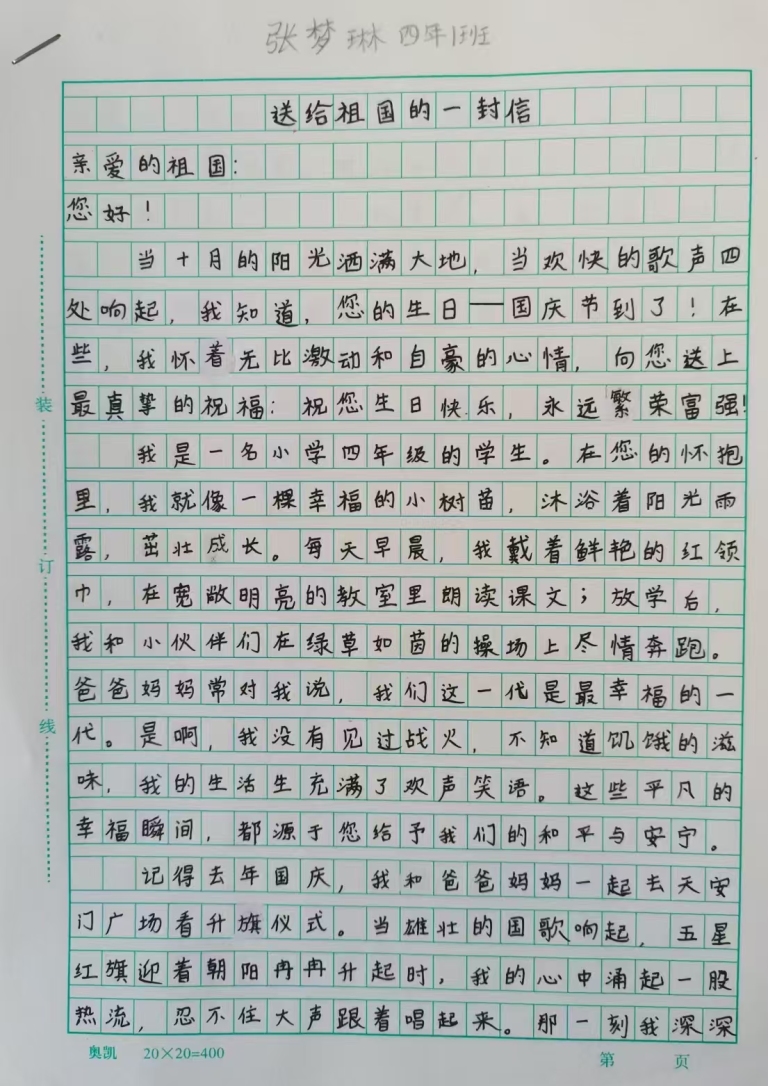 张梦琳 四年1班
送给祖国的一封信
亲爱的祖国：
您好！
当十月的阳光洒满大地，当欢快的歌声四
处响起，我知道，您的生日——国庆节到了！在
些，我怀着无比激动和自豪的心情，向您送上
最真挚的祝福：祝您生日快乐，永远繁荣富强！
我是一名小学四年级的学生。在您的怀抱
里，我就像一棵幸福的小树苗，沐浴着阳光雨
露，茁壮成长。每天早晨，我戴着鲜艳的红领
巾，在宽敞明亮的教室里朗读课文；放学后，
我和小伙伴们在绿草如茵的操场上尽情奔跑。
爸爸妈妈常对我说，我们这一代是最幸福的一
代。是啊，我没有见过战火，不知道饥饿的滋
味，我的生活生充满了欢声笑语。这些平凡的
幸福瞬间，都源于您给予我们的和平与安宁。
记得去年国庆，我和爸爸妈妈一起去天安
门广场看升旗仪式。当雄壮的国歌响起，五星
红旗迎着朝阳冉冉升起时，我的心中涌起一股
热流，忍不住大声跟着唱起来。那一刻我深深
装
订
线
奥凯 20×20=400 第 页